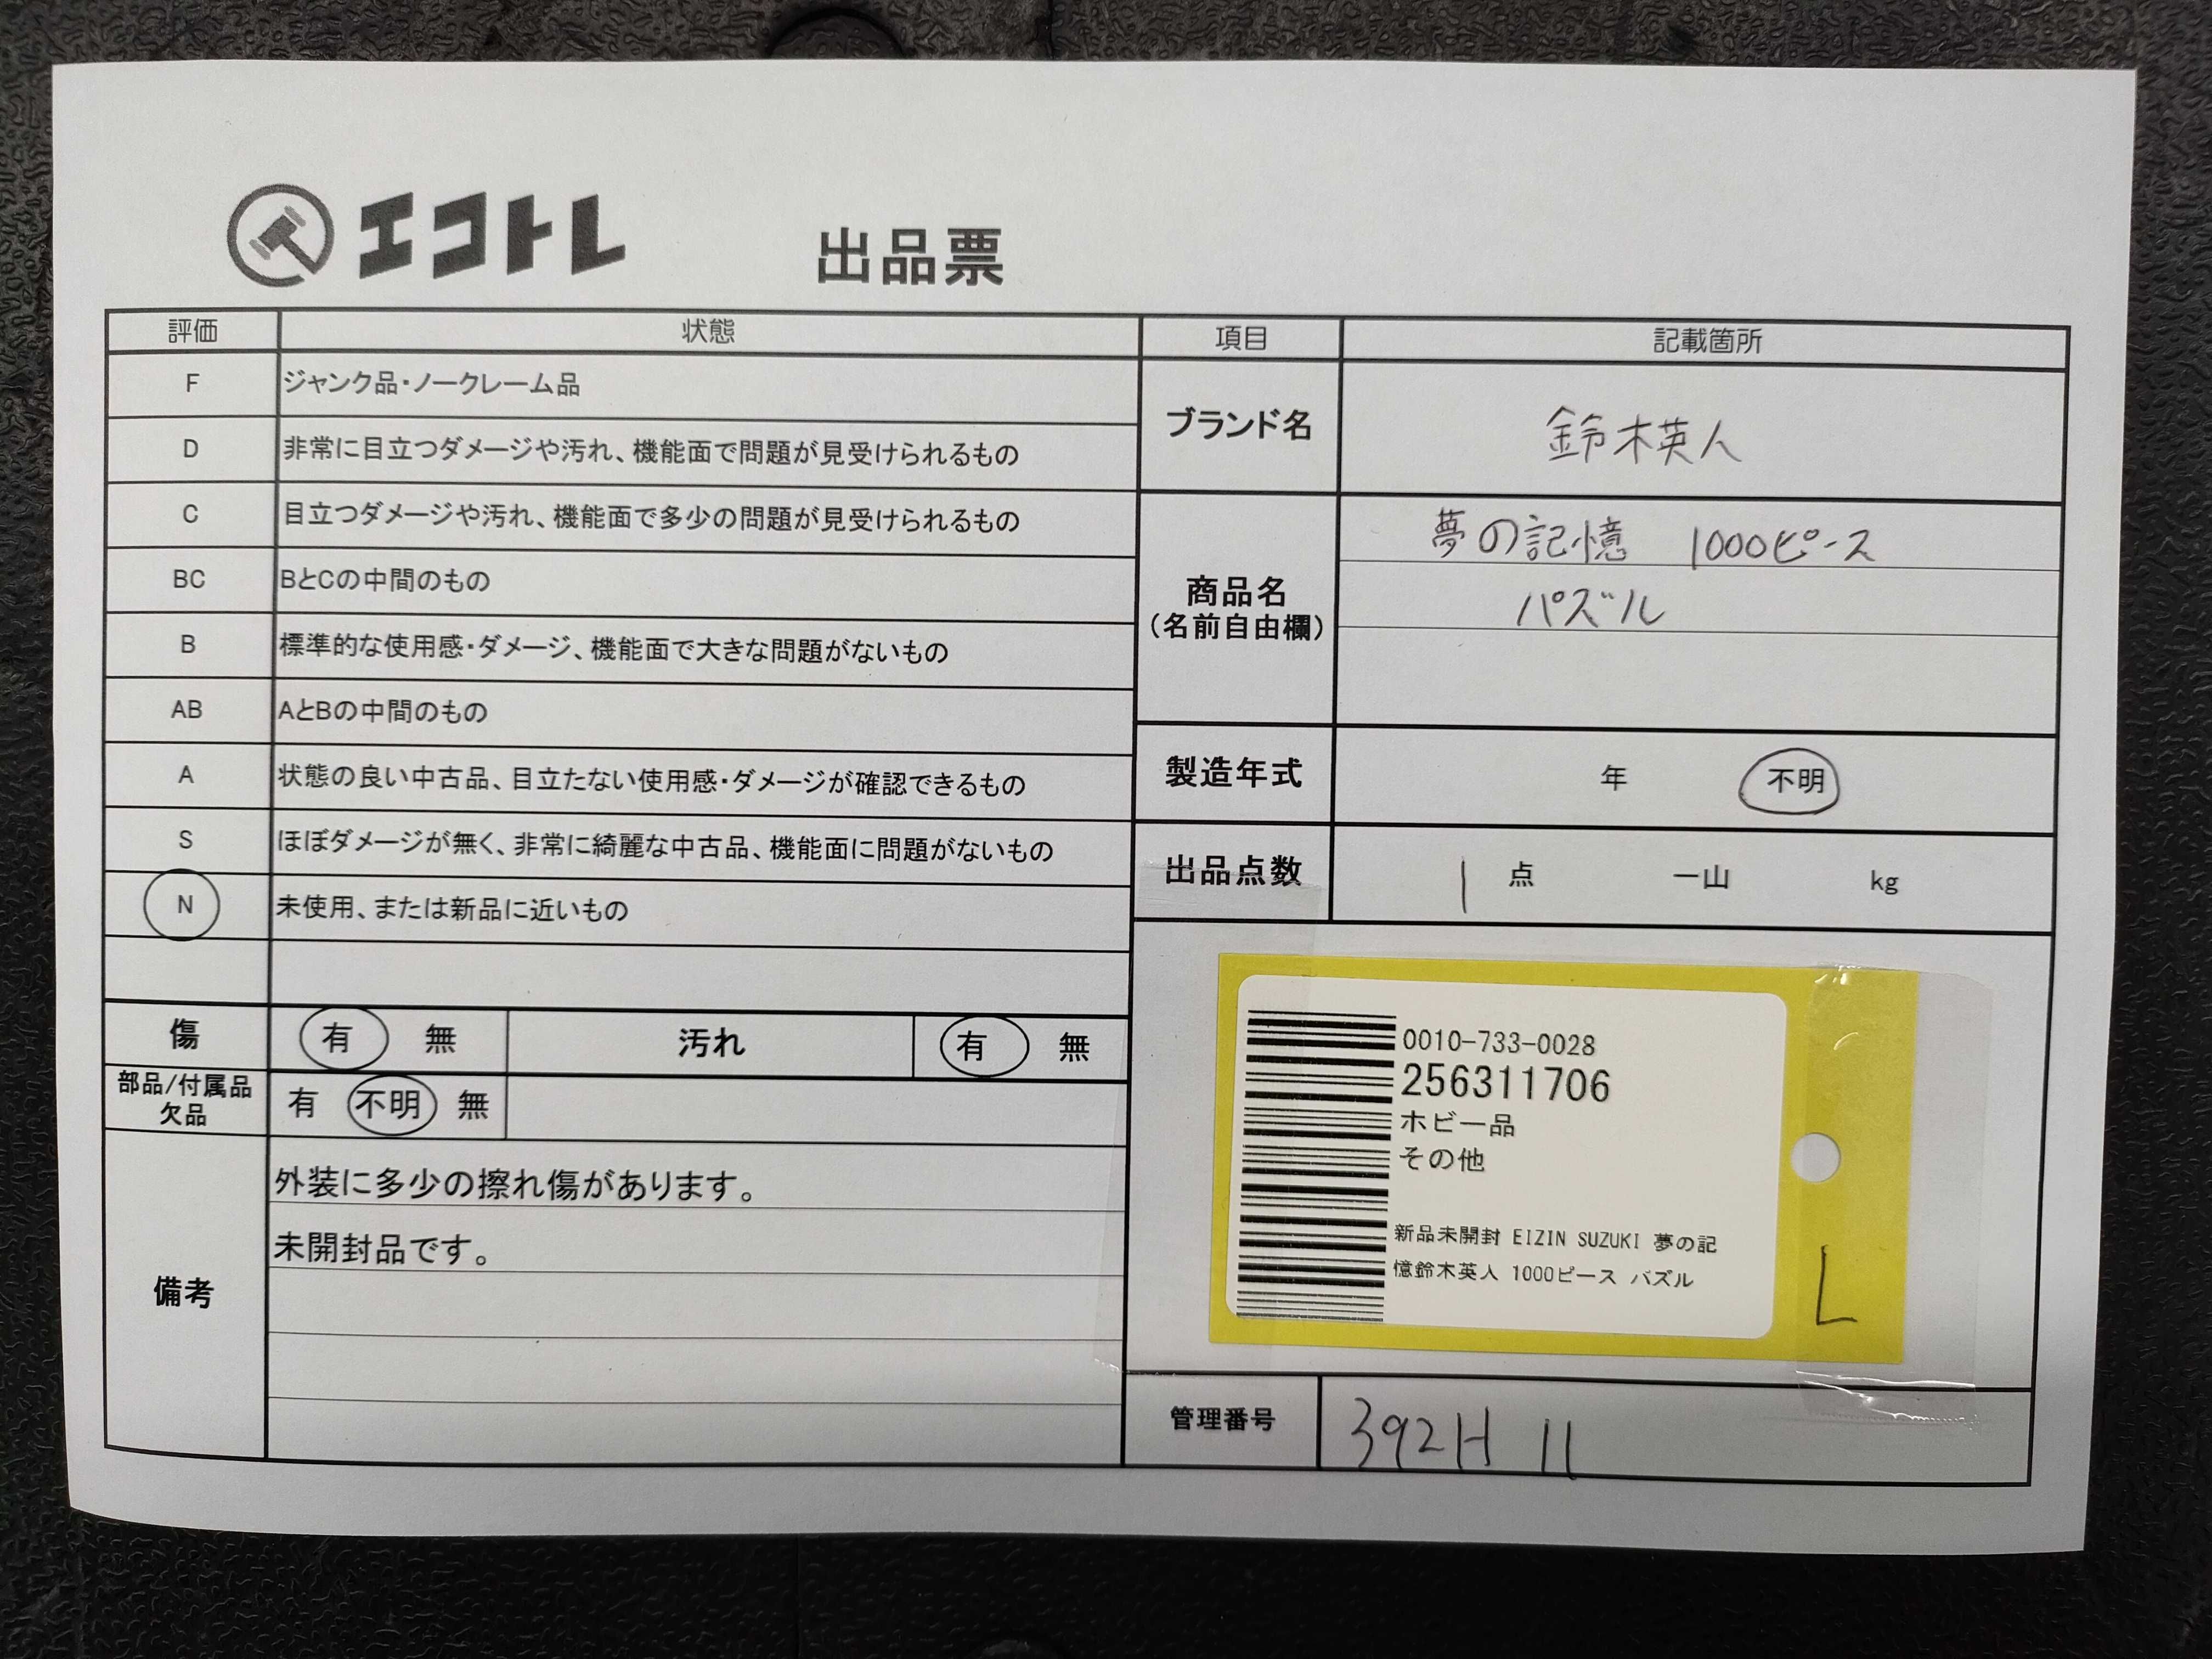 エコトレ 出品票
評価 状態
F ジャンク品・ノークレーム品
D 非常に目立つダメージや汚れ、機能面で問題が見受けられるもの
C 目立つダメージや汚れ、機能面で多少の問題が見受けられるもの
BC BとCの中間のもの
B 標準的な使用感・ダメージ、機能面で大きな問題がないもの
AB AとBの中間のもの
A 状態の良い中古品、目立たない使用感・ダメージが確認できるもの
S ほぼダメージが無く、非常に綺麗な中古品、機能面に問題がないもの
N 未使用、または新品に近いもの
傷 有 無 汚れ 有 無
部品/付属品
欠品 有 不明 無
備考
外装に多少の擦れ傷があります。
未開封品です。
項目 記載箇所
ブランド名 鈴木英人
商品名
(名前自由欄)
夢の記憶 1000ピース
パズル
製造年式 年 不明
出品点数 1 点 一山 kg
0010-733-0028
256311706
ホビー品
その他
新品未開封 EIZIN SUZUKI 夢の記
憶鈴木英人 1000ピース パズル
L
管理番号 392H 11